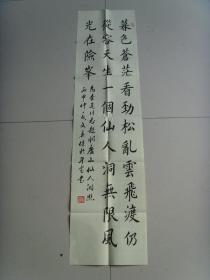 暮色蒼茫看劲松亂雲飛渡仍
從容天生一個仙人洞無限風
光在險峯
為李進同志題所攝廬山仙人洞照